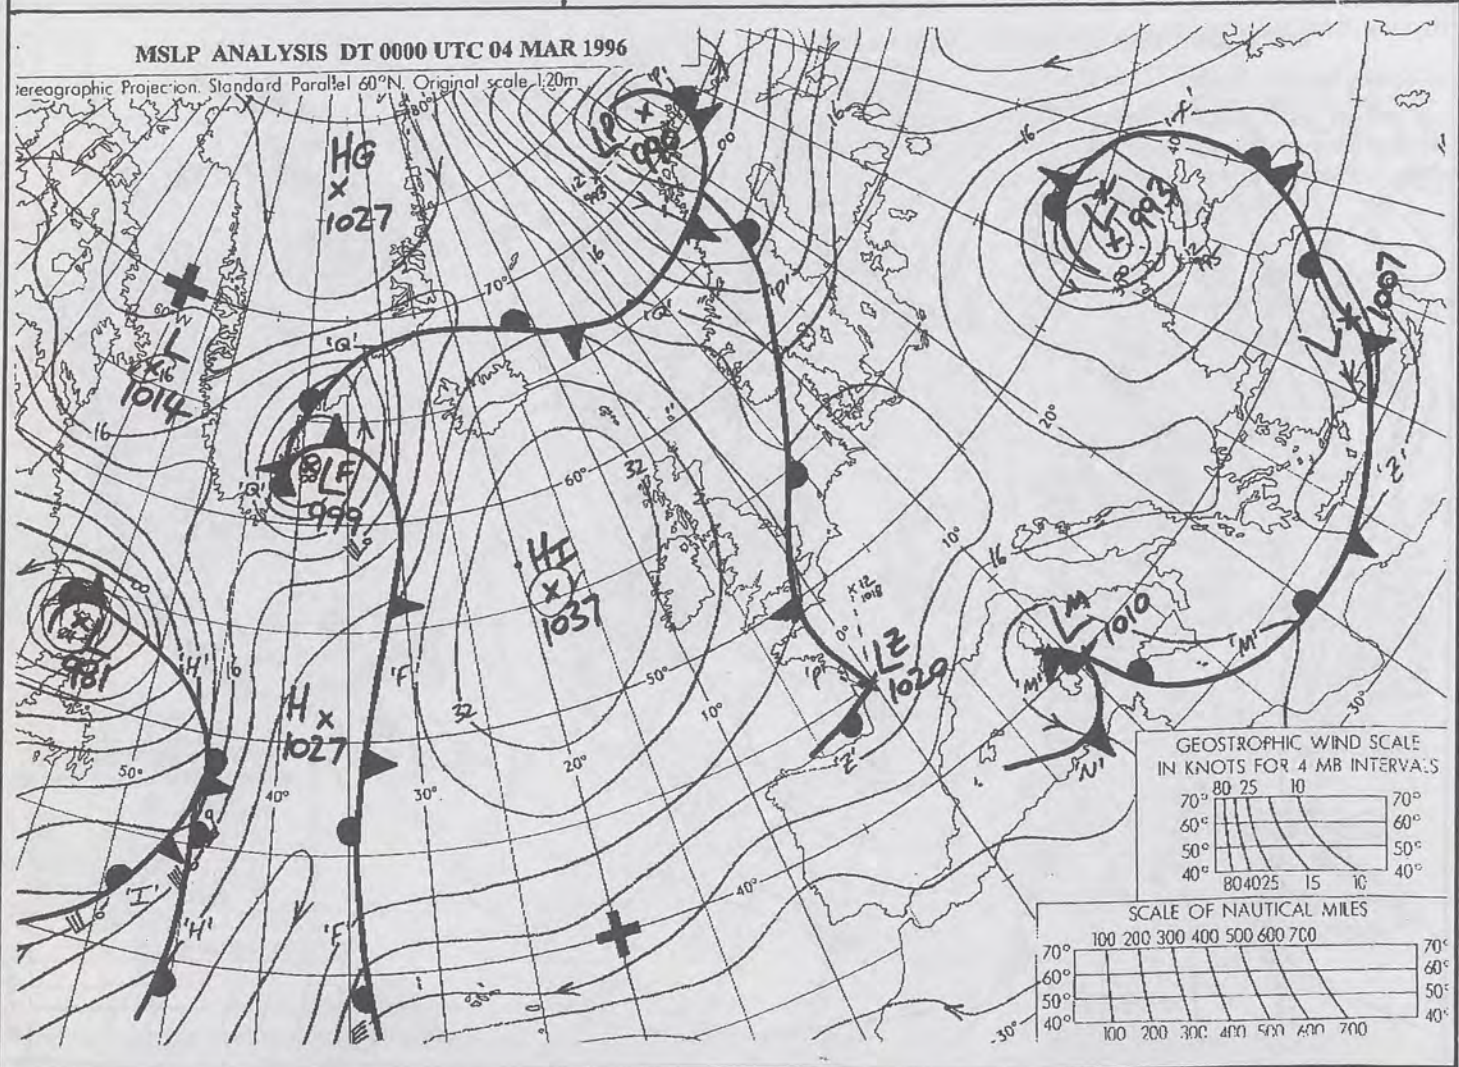 MSLP ANALYSIS DT 0000 UTC 04 MAR 1996
tereographic Projection. Standard Parallel 60°N. Original scale 1:20m
80°
'P'
LP
990
00
12
993
16
16
'X'
40°
HG
1027
70°
16
'Q'
'P'
LX
993
30°
12
993
L
1007
60°N
L
16
1014
16
'Q'
20°
'Z'
LF
999
'Q'
60°
32
10°
16
00
HI
1037
12
1018
0°
LM
1010
'M'
'M'
L
981
'H'
'F'
H
1027
32
50°
10°
LZ
1020
'P'
'Z'
'N'
30°
8
50°
40°
30°
20°
40°
'I'
'H'
'F'
30°
GEOSTROPHIC WIND SCALE
IN KNOTS FOR 4 MB INTERVALS
80 25 10
70° 70°
60° 60°
50° 50°
40° 40°
80 40 25 15 10
SCALE OF NAUTICAL MILES
100 200 300 400 500 600 700
70° 70°
60° 60°
50° 50°
40° 40°
100 200 300 400 500 600 700